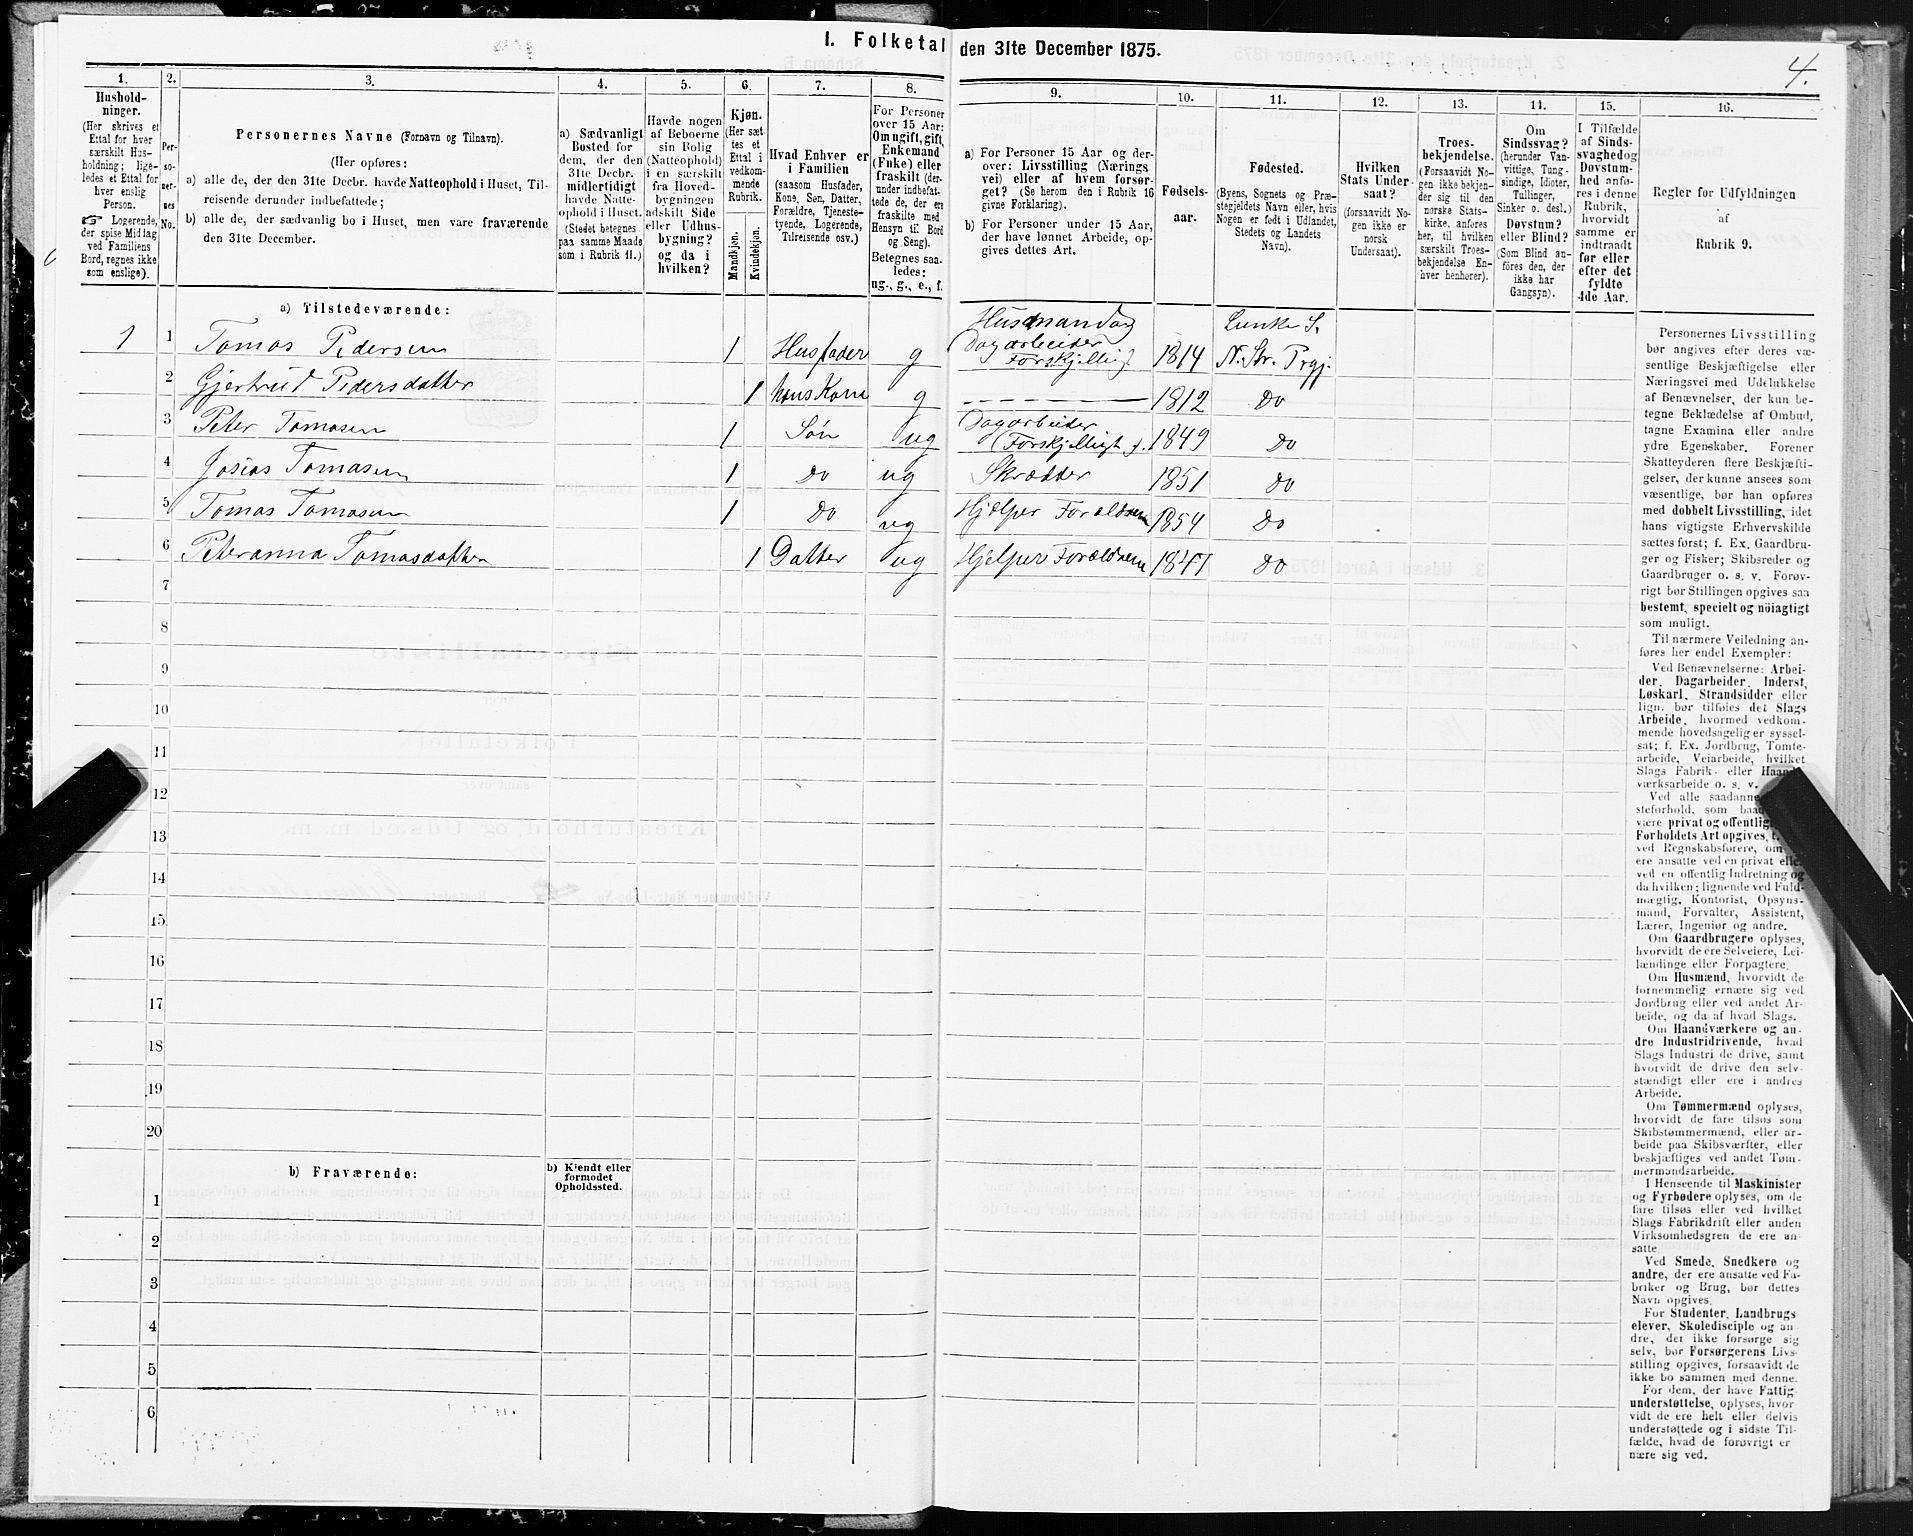 I. Folketal den 31te December 1875.
4.
1.
Hushold-
ninger.
(Her skrives et
Ettal for hver
særskilt Hus-
holdning; lige-
ledes et Ettal for
hver enslig
Person.
Logerende,
der spise Middag
ved Familiens
Bord, regnes ikke
som enslige).
2.
Per-
so-
ner-
nes
No.
3.
Personernes Navne (Fornavn og Tilnavn).
(Her opføres:
a) alle de, der den 31te Decbr. havde Natteophold i Huset, Til-
reisende derunder indbefattede;
b) alle de, der sædvanlig bo i Huset, men vare fraværende
den 31te December.
4.
a) Sædvanligt
Bosted for
dem, der den
31te Decbr.
midlertidigt
havde Natte-
ophold i Huset.
(Stedet betegnes
paa samme Maade
som i Rubrik 11.)
5.
Havde nogen
af Beboerne
sin Bolig
(Natteophold)
i en særskilt
fra Hoved-
bygningen
adskilt Side
eller Udhus-
bygning?
og da i
hvilken?
6.
Kjøn.
(Her sæt
tes et
Ettal i
vedkom-
mende
Rubrik.
Mandkjøn.
Kvindekjøn.
7.
Hvad Enhver er
i Familien
(saasom Husfader,
Kone, Søn, Datter,
Forældre, Tjeneste-
tyende, Logerende,
Tilreisende osv.)
8.
For Personer
over 15 Aar:
Om ugift, gift,
Enkemand
(Enke) eller
fraskilt (der-
under indbefat-
tede de, der ere
fraskilte med
Hensyn til Bord
og Seng).
Betegnes saa-
ledes:
ug., g., e., f.
9.
a) For Personer 15 Aar og der-
over: Livsstilling (Nærings
vei) eller af hvem forsør-
get? (Se herom den i Rubrik 16
givne Forklaring).
b) For Personer under 15 Aar,
der have lønnet Arbeide, op-
gives dettes Art.
10.
Fødsels-
aar.
11.
Fødested.
(Byens, Sognets og Præ-
stegjeldets Navn eller, hvis
Nogen er født i Udlandet,
Stedets og Landets
Navn).
12.
Hvilken
Stats Under-
saat?
(forsaavidt No-
gen ikke er
norsk
Undersaat).
13.
Troes-
bekjendelse.
(Forsaavidt No-
gen ikke bekjen-
der sig til den
norske Stats-
kirke, anføres
her, til hvilken
særskilt Troes-
bekjendelse En-
hver henhører).
14.
Om
Sindssvag?
(herunder Van-
vittige, Tung-
sindige, Idioter,
Tullinger,
Sinker o. desl.)
Døvstum?
eller Blind?
(Som Blind an-
føres den, der
ikke har
Gangsyn).
15.
I Tilfælde
af Sinds-
svaghed og
Døvstum-
hed anfø-
res i denne
Rubrik,
hvorvidt
samme er
indtraadt
før eller
efter det
fyldte
4de Aar.
16.
Regler for Udfyldningen
af
Rubrik 9.
a) Tilstedeværende:
1 1 Tomas Pedersen 1 Husfader g Husmand og Dagarbeider Forskjelligt 1814 Lunke S. N. Str. Prgj.
2 Gjertrud Pedersdatter 1 huus Kone g ---- 1812 Do
3 Peter Tomasen 1 Søn ug Dagarbeider (Forskjelligt). 1849 Do
4 Josias Tomasen 1 Do ug Skrædder 1851 Do
5 Tomas Tomasen 1 Do ug Hjælper Forældrene 1854 Do
6 Peteranna Tomasdatter 1 Datter ug Hjelper Forældrene 1847 Do
7
8
9
10
11
12
13
14
15
16
17
18
19
20
b) Fraværende:
b) Kjendt eller
formodet
Opholdssted.
1
2
3
4
5
6
Personernes Livsstilling
bør angives efter deres væ-
sentlige Beskjæftigelse eller
Næringsvei med Udelukkelse
af Benævnelser, der kun be-
tegne Beklædelse af Ombud,
tagne Examina eller andre
ydre Egenskaber. Forener
Skatteyderen flere Beskjæfti-
gelser, der kunne ansees som
væsentlige, bør han opføres
med dobbelt Livsstilling, idet
hans vigtigste Erhvervskilde
sættes først; f. Ex. Gaardbru-
ger og Fisker; Skibsreder og
Gaardbruger o. s. v. Forøv-
rigt bør Stillingen opgives saa
bestemt, specielt og nöiagtigt
som muligt.
Til nærmere Veiledning an-
føres her endel Exempler:
Ved Benævnelserne: Arbei-
der, Dagarbeider, Inderst,
Løskarl, Strandsidder eller
lign. bør tilføies det Slags
Arbeide, hvormed vedkom-
mende hovedsagelig er syssel-
sat; f. Ex. Jordbrug, Tomte-
arbeide, Veiarbeide, hvilket
Slags Fabrik- eller Haand-
værksarbeide o. s. v.
Ved alle saadanne
steforhold, som baade
være privat og offentlig
Forholdets Art opgives,
ved Regnskabsførere, om
ere ansatte ved en privat eller
ved en offentlig Indretning og
da hvilken; lignende ved Fuld-
mægtig, Kontorist, Opsyns-
mand, Forvalter, Assistent,
Lærer, Ingeniør og andre.
Om Gaardbrugere oplyses,
hvorvidt de ere Selveiere, Lei-
lændinge eller Forpagtere.
Om Husmænd, hvorvidt de
fornemmelig ernære sig ved
Jordbrug eller ved andet Ar-
beide, og da af hvad Slags.
Om Haandværkere og an-
dre Industridrivende, hvad
Slags Industri de drive, samt
hvorvidt de drive den selv-
stændigt eller ere i andres
Arbeide.
Om Tømmermænd oplyses,
hvorvidt de fare tilsøs som
Skibstømmermænd, eller ar-
beide paa Skibsværfter, eller
beskjæftiges ved andet Tøm-
mermandsarbeide.
I Henseende til Maskinister
og Fyrbødere oplyses, om de
fare tilsøs eller ved hvilket
Slags Fabrikdrift eller anden
Virksomhedsgren de ere an-
satte
Ved Smede, Snedkere og
andre, der ere ansatte ved Fa-
briker og Brug, bør dettes
Navn opgives.
For Studenter, Landbrugs
elever, Skoledisciple og an-
dre, der ikke forsørge sig
selv, bør Forsørgerens Livs-
stilling opgives, forsaavidt de
ikke bo sammen med denne.
For dem, der have Fattig-
understøttelse, oplyses, hvor-
vidt de ere helt eller delvis
understøttede og i sidste Til-
fælde, hvad de forøvrigt er-
nære sig ved.